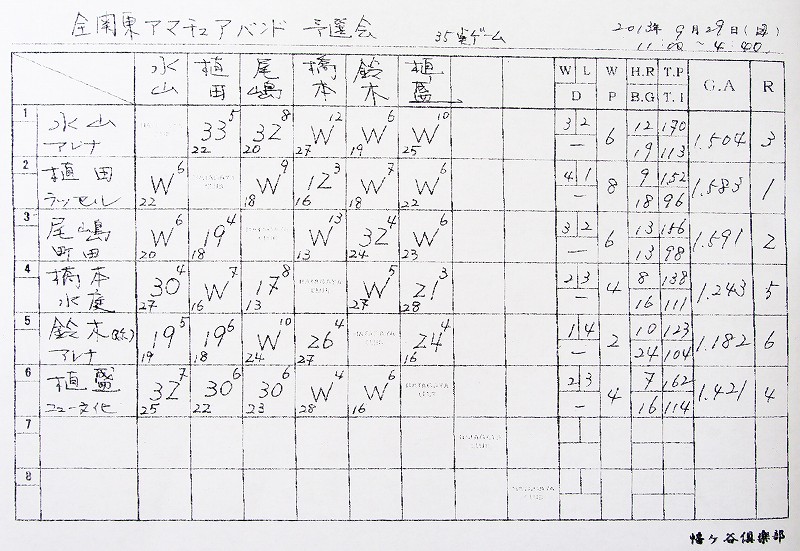 全関東アマチュアバンド 予選会 35点ゲーム 2013年9月29日(日)
11:00 ~ 4:40
水山 植田 尾嶋 橋本 鈴木 植盛 W L D W P H.R B.G T.P T.I G.A R
1 水山 アレナ 33 5 22 32 8 20 W 12 27 W 6 19 W 10 25 3 2 — 6 12 19 170 113 1.504 3
2 植田 ラッセル W 6 22 W 9 18 12 3 16 W 7 18 W 6 22 4 1 — 8 9 18 152 96 1.583 1
3 尾嶋 町田 W 6 20 19 4 18 W 13 13 32 4 24 W 6 23 3 2 — 6 13 13 156 98 1.591 2
4 橋本 水庭 30 4 27 W 7 16 17 8 13 W 5 27 21 3 28 2 3 — 4 8 16 138 111 1.243 5
5 鈴木 アレナ 19 5 19 19 6 18 W 10 24 26 4 27 24 4 16 1 4 — 2 10 24 123 104 1.182 6
6 植盛 ニュー文化 32 7 25 30 6 22 30 6 23 W 4 28 W 6 16 2 3 — 4 7 16 162 114 1.421 4
7
8
幡ヶ谷倶楽部